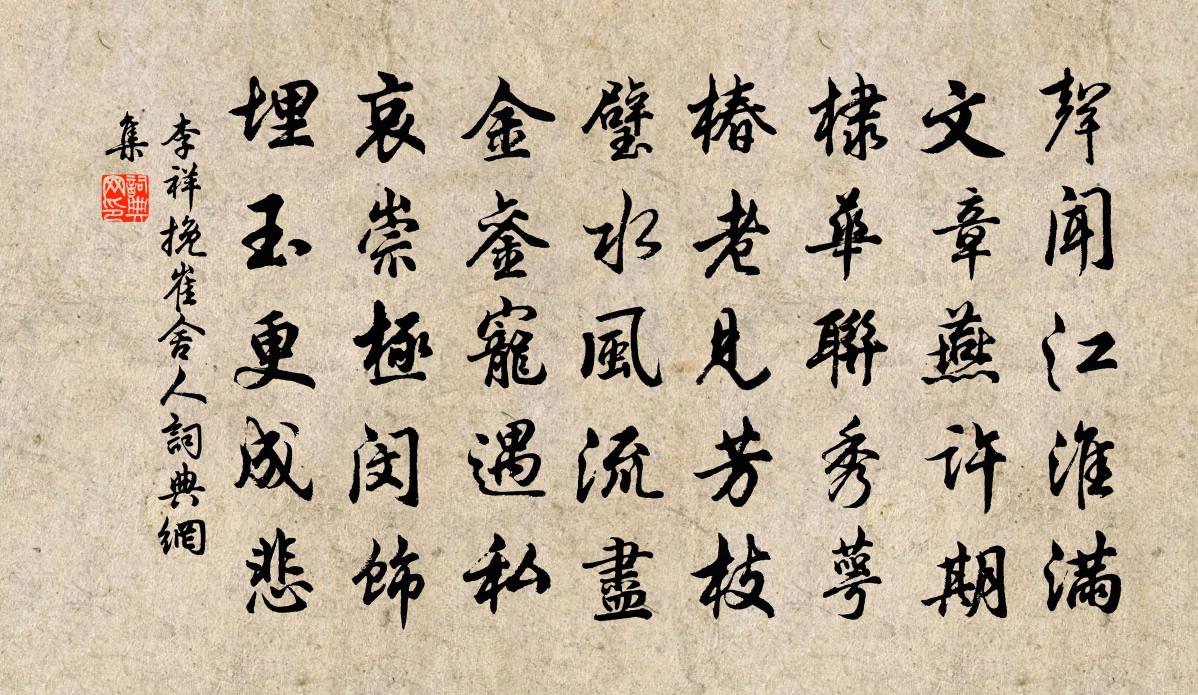 聲聞江淮滿
文章燕許期
棣華聯秀萼
椿老見芳枝
璧水風流盡
金鑾寵遇私
哀崇極閔飾
埋玉更成悲
李祥挽崔舍人詞典網
集
詞典网印